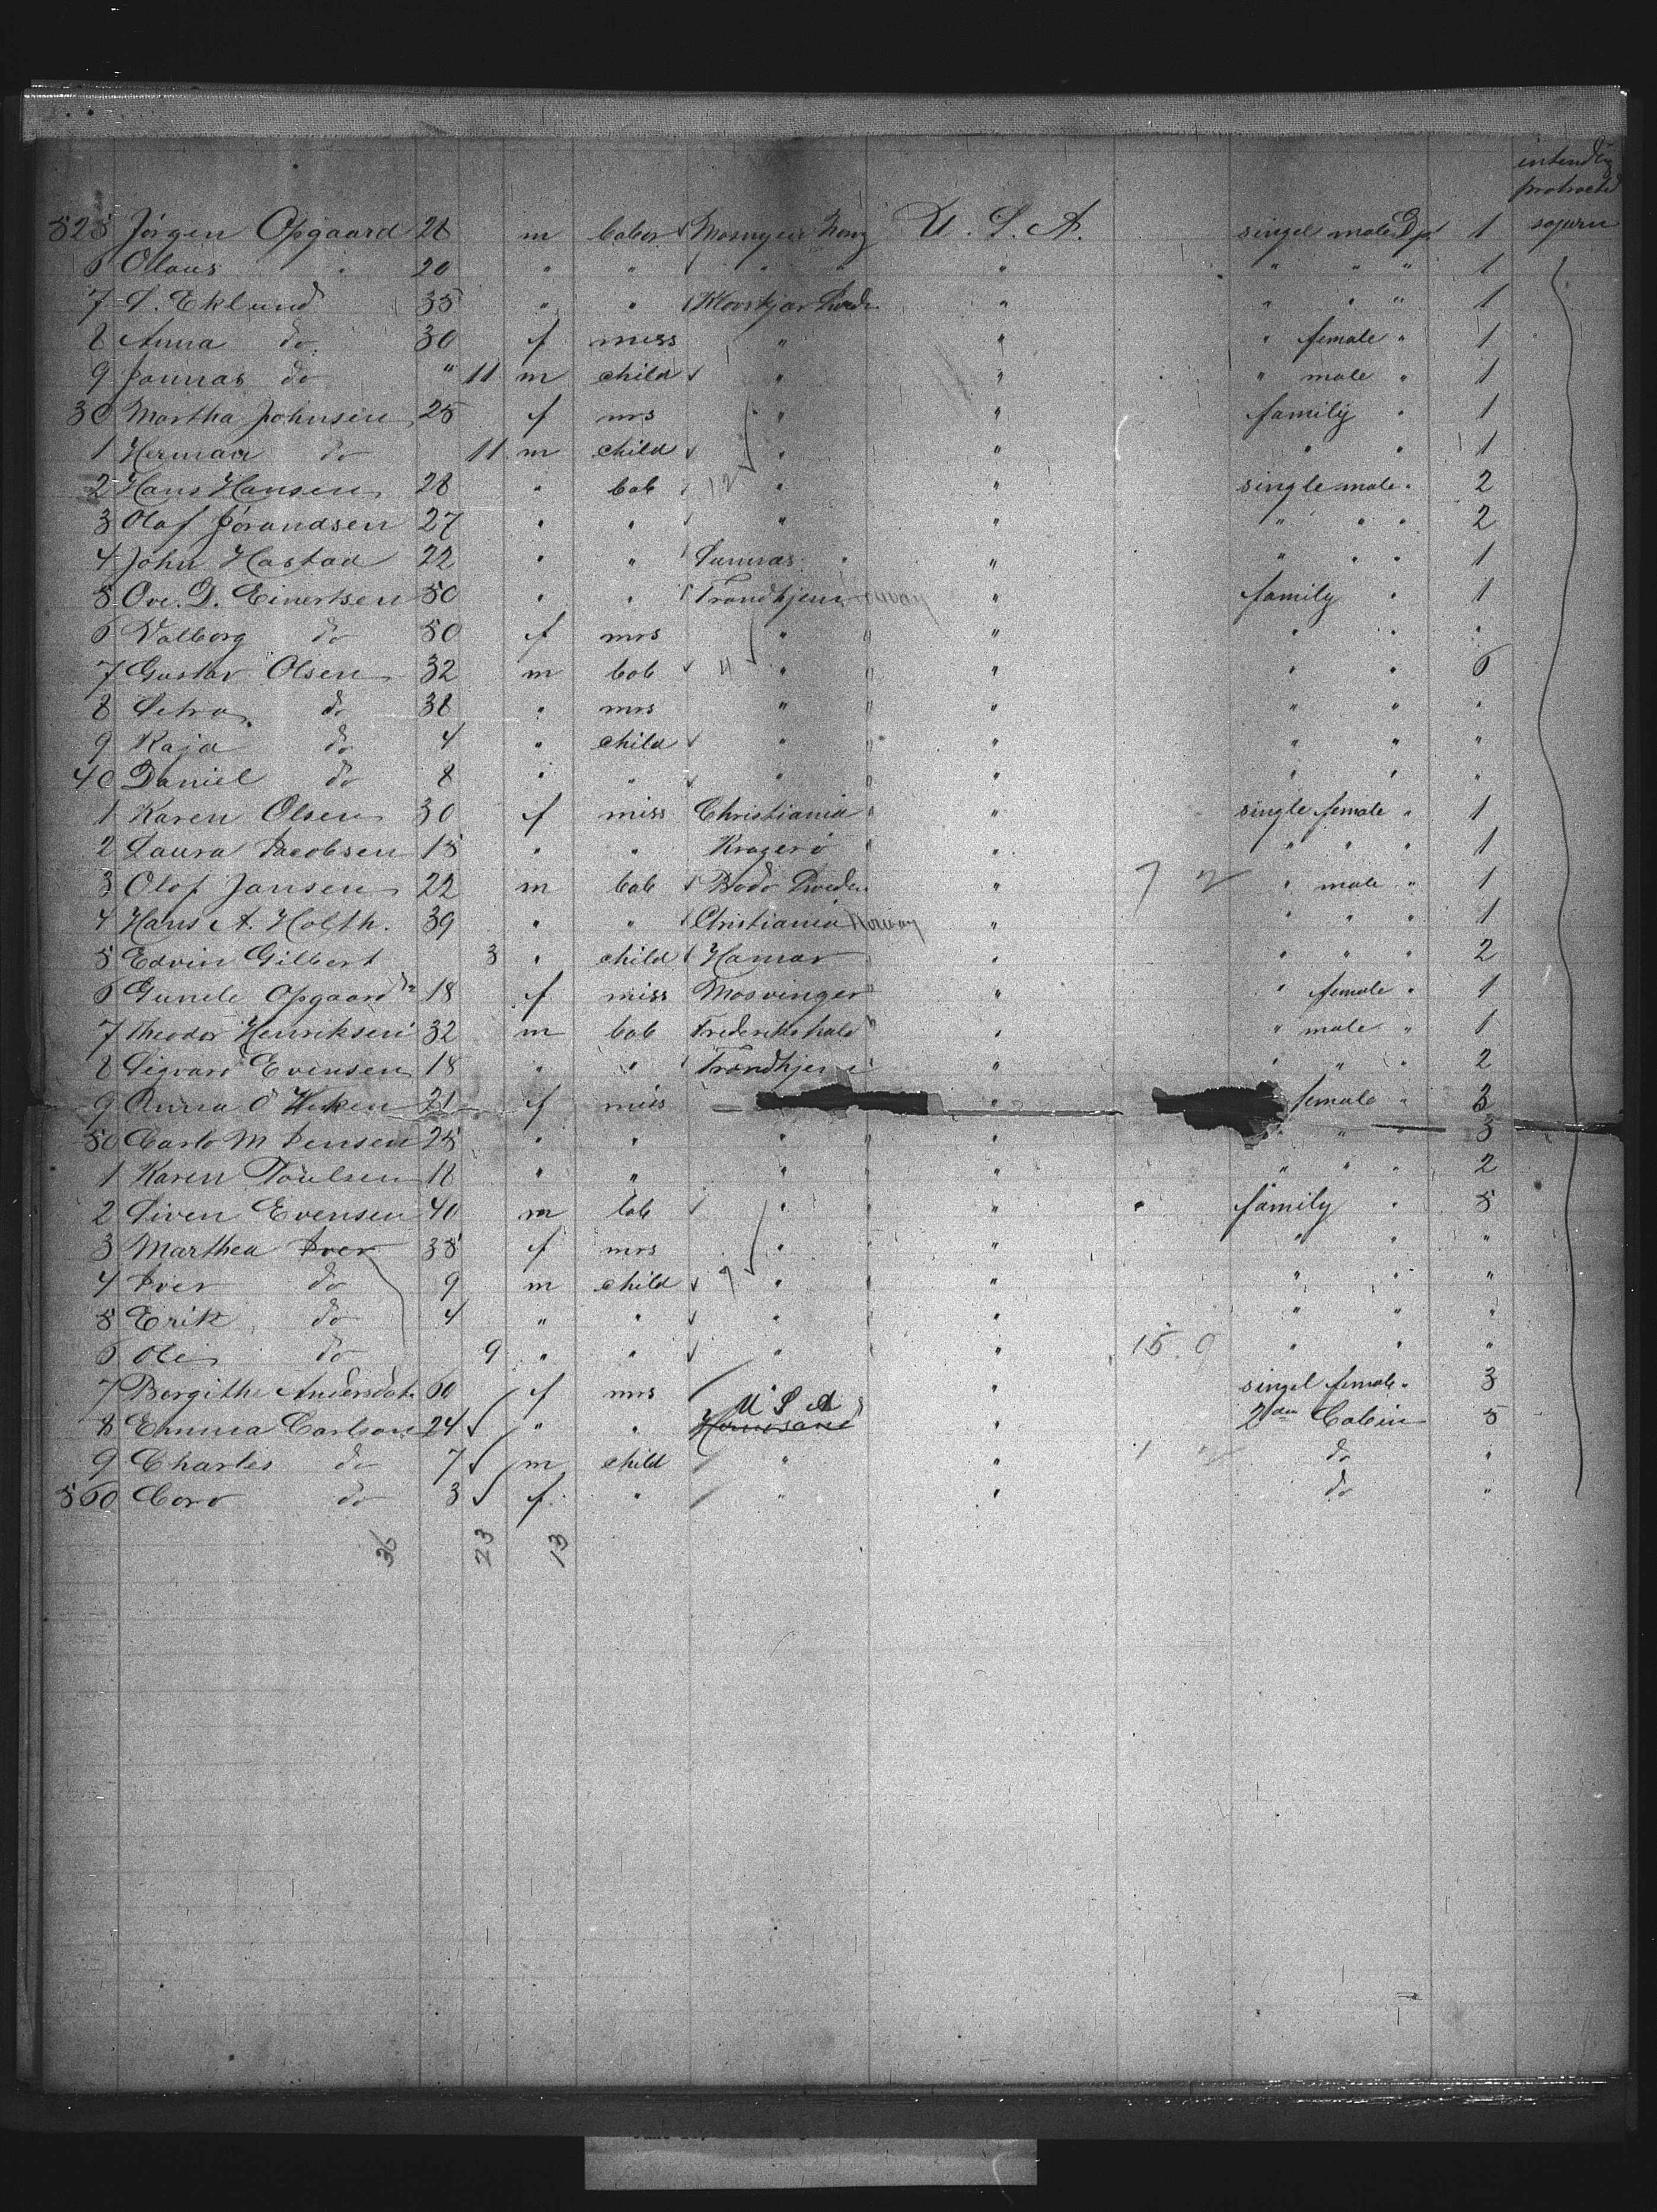 intending
protracted
525 Jörgen Opgaard 28 m labor U. S. A. singel male Dpt 1 sojurn
6 Olaus " 20 " " " " " " " " " 1
7 S. Eklund 35 " " " " " " 1
8 Anna do 30 f miss " " " female " 1
9 Jounas do " 11 m child " " " male " 1
30 Martha Johnsen 25 f mrs " " family " 1
1 Herman do 11 m child " " " " 1
2 Hans Hansen 28 " lab 12 " " single male " 2
3 Olaf Jörandsen 27 " " " " " " " 2
4 John Hastad 22 " " Sunnas " " " " " 1
5 Ove. D. Einertsen 50 " " Trondhjem Norway " family " 1
6 Valborg do 50 f mrs " " " " " "
7 Gustav Olsen 32 m lab 4 " " " " " 6
8 Petra do 38 " mrs " " " " " "
9 Kaja do 4 " child " " " " " "
40 Daniel do 8 " " " " " " " "
1 Karen Olsen 30 f miss Christiania " " single female " 1
2 Laura Jacobsen 15 " " Kragerö " " " " " 1
3 Olof Jansen 22 m lab Bodö Sweden " 7 2 " male " 1
4 Hans A. Holth. 39 " " Christiania Norway " " " " 1
5 Edvin Gilbert 3 " child Hamar " " " " 2
6 Gunele Opgaard 18 f miss Mosvinger " " " female " 1
7 Theodor Henriksen 32 m lab Frederikshald " " " male " 1
8 Sigvard Evensen 18 " " Trondhjem " " " " " 2
9 Anna O 21 f miss " female " 3
50 Carlo M Jensen 25 " " " " " " " " 3
1 Karen Poulsen 18 " " " " " " " " 2
2 Siven Evensen 40 m lab " " " family " 5
3 Marthea Iver 35 f mrs " " " " " "
4 Iver do 9 m child 9 " " " " " "
5 Erik do 4 " " " " " " "
6 Ole do 9 " " " " " 15. 9 " " "
7 Bergithe Andersdotr 60 f mrs " " singel female " 3
U S A
8 Emma Carlson 24 " " " 2den Cabin 5
9 Charles do 7 m child " " 1 do "
560 Coro do 3 f " " " do "
36 23 13